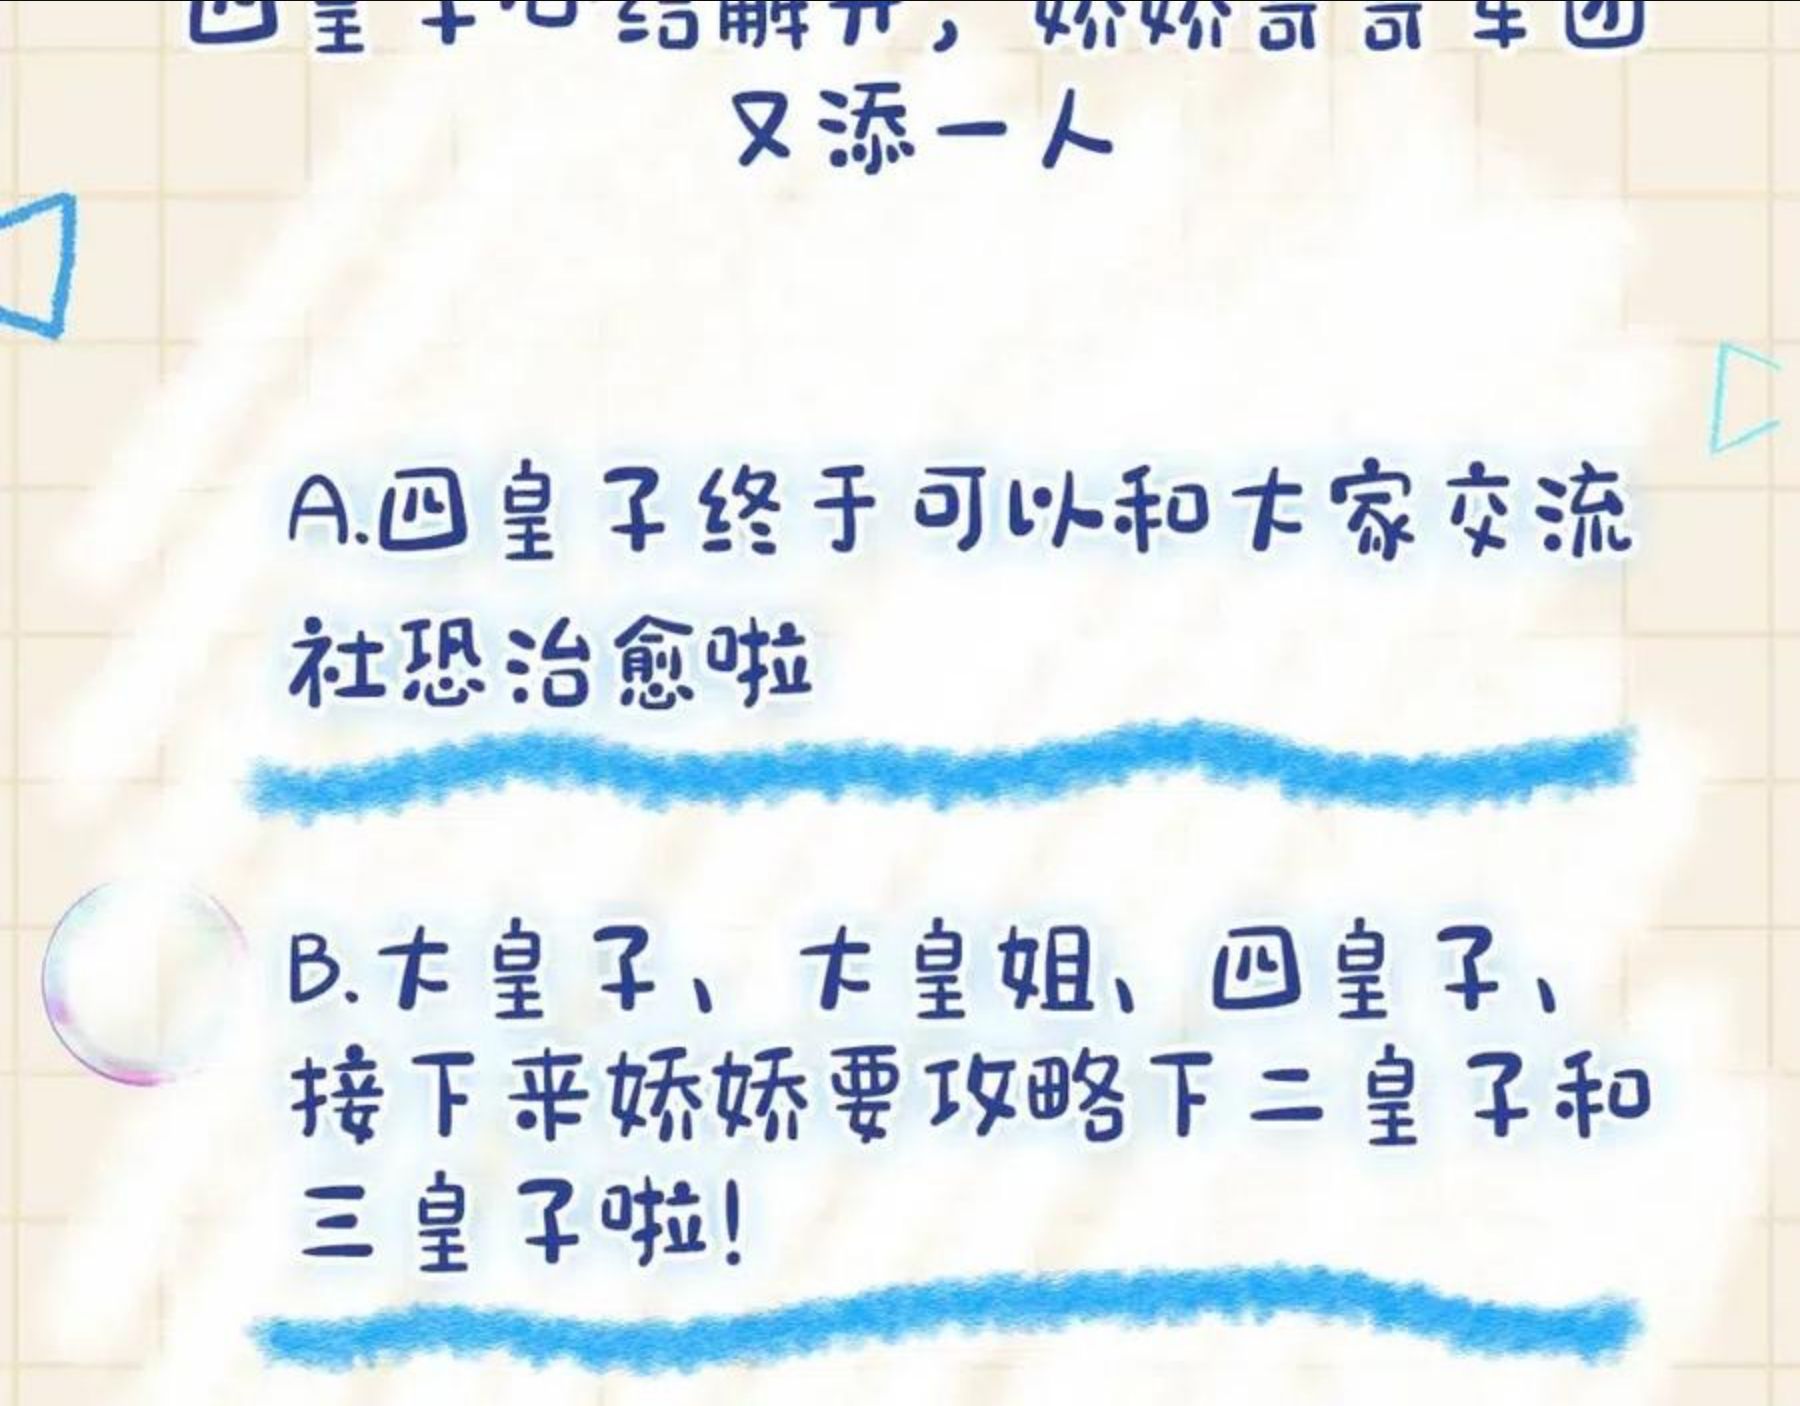 四皇子心结解开，娇娇哥哥军团
又添一人
A.四皇子终于可以和大家交流
社恐治愈啦
B.大皇子、大皇姐、四皇子、
接下来娇娇要攻略下二皇子和
三皇子啦！